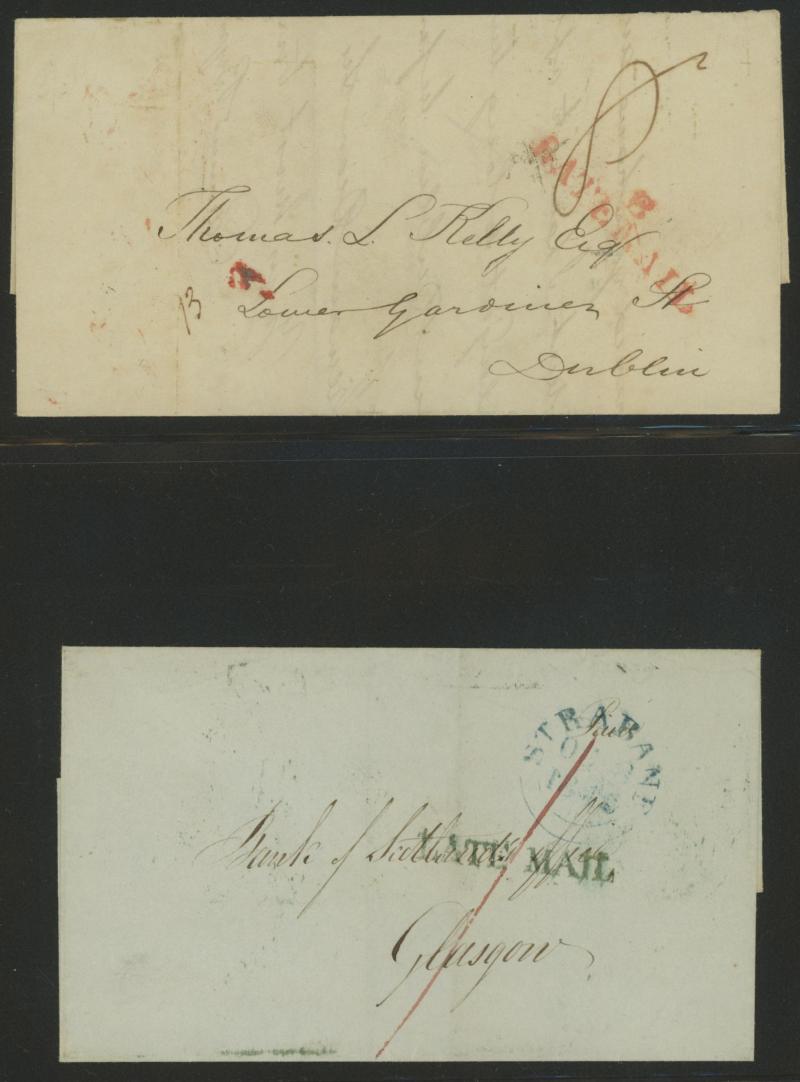 8
B
LATE MAIL
Thomas. L. Kelly Esq
13 Lower Gardiner St
Dublin
STRABANE
Paid
Bank of Scotlands office
LATE MAIL
Glasgow